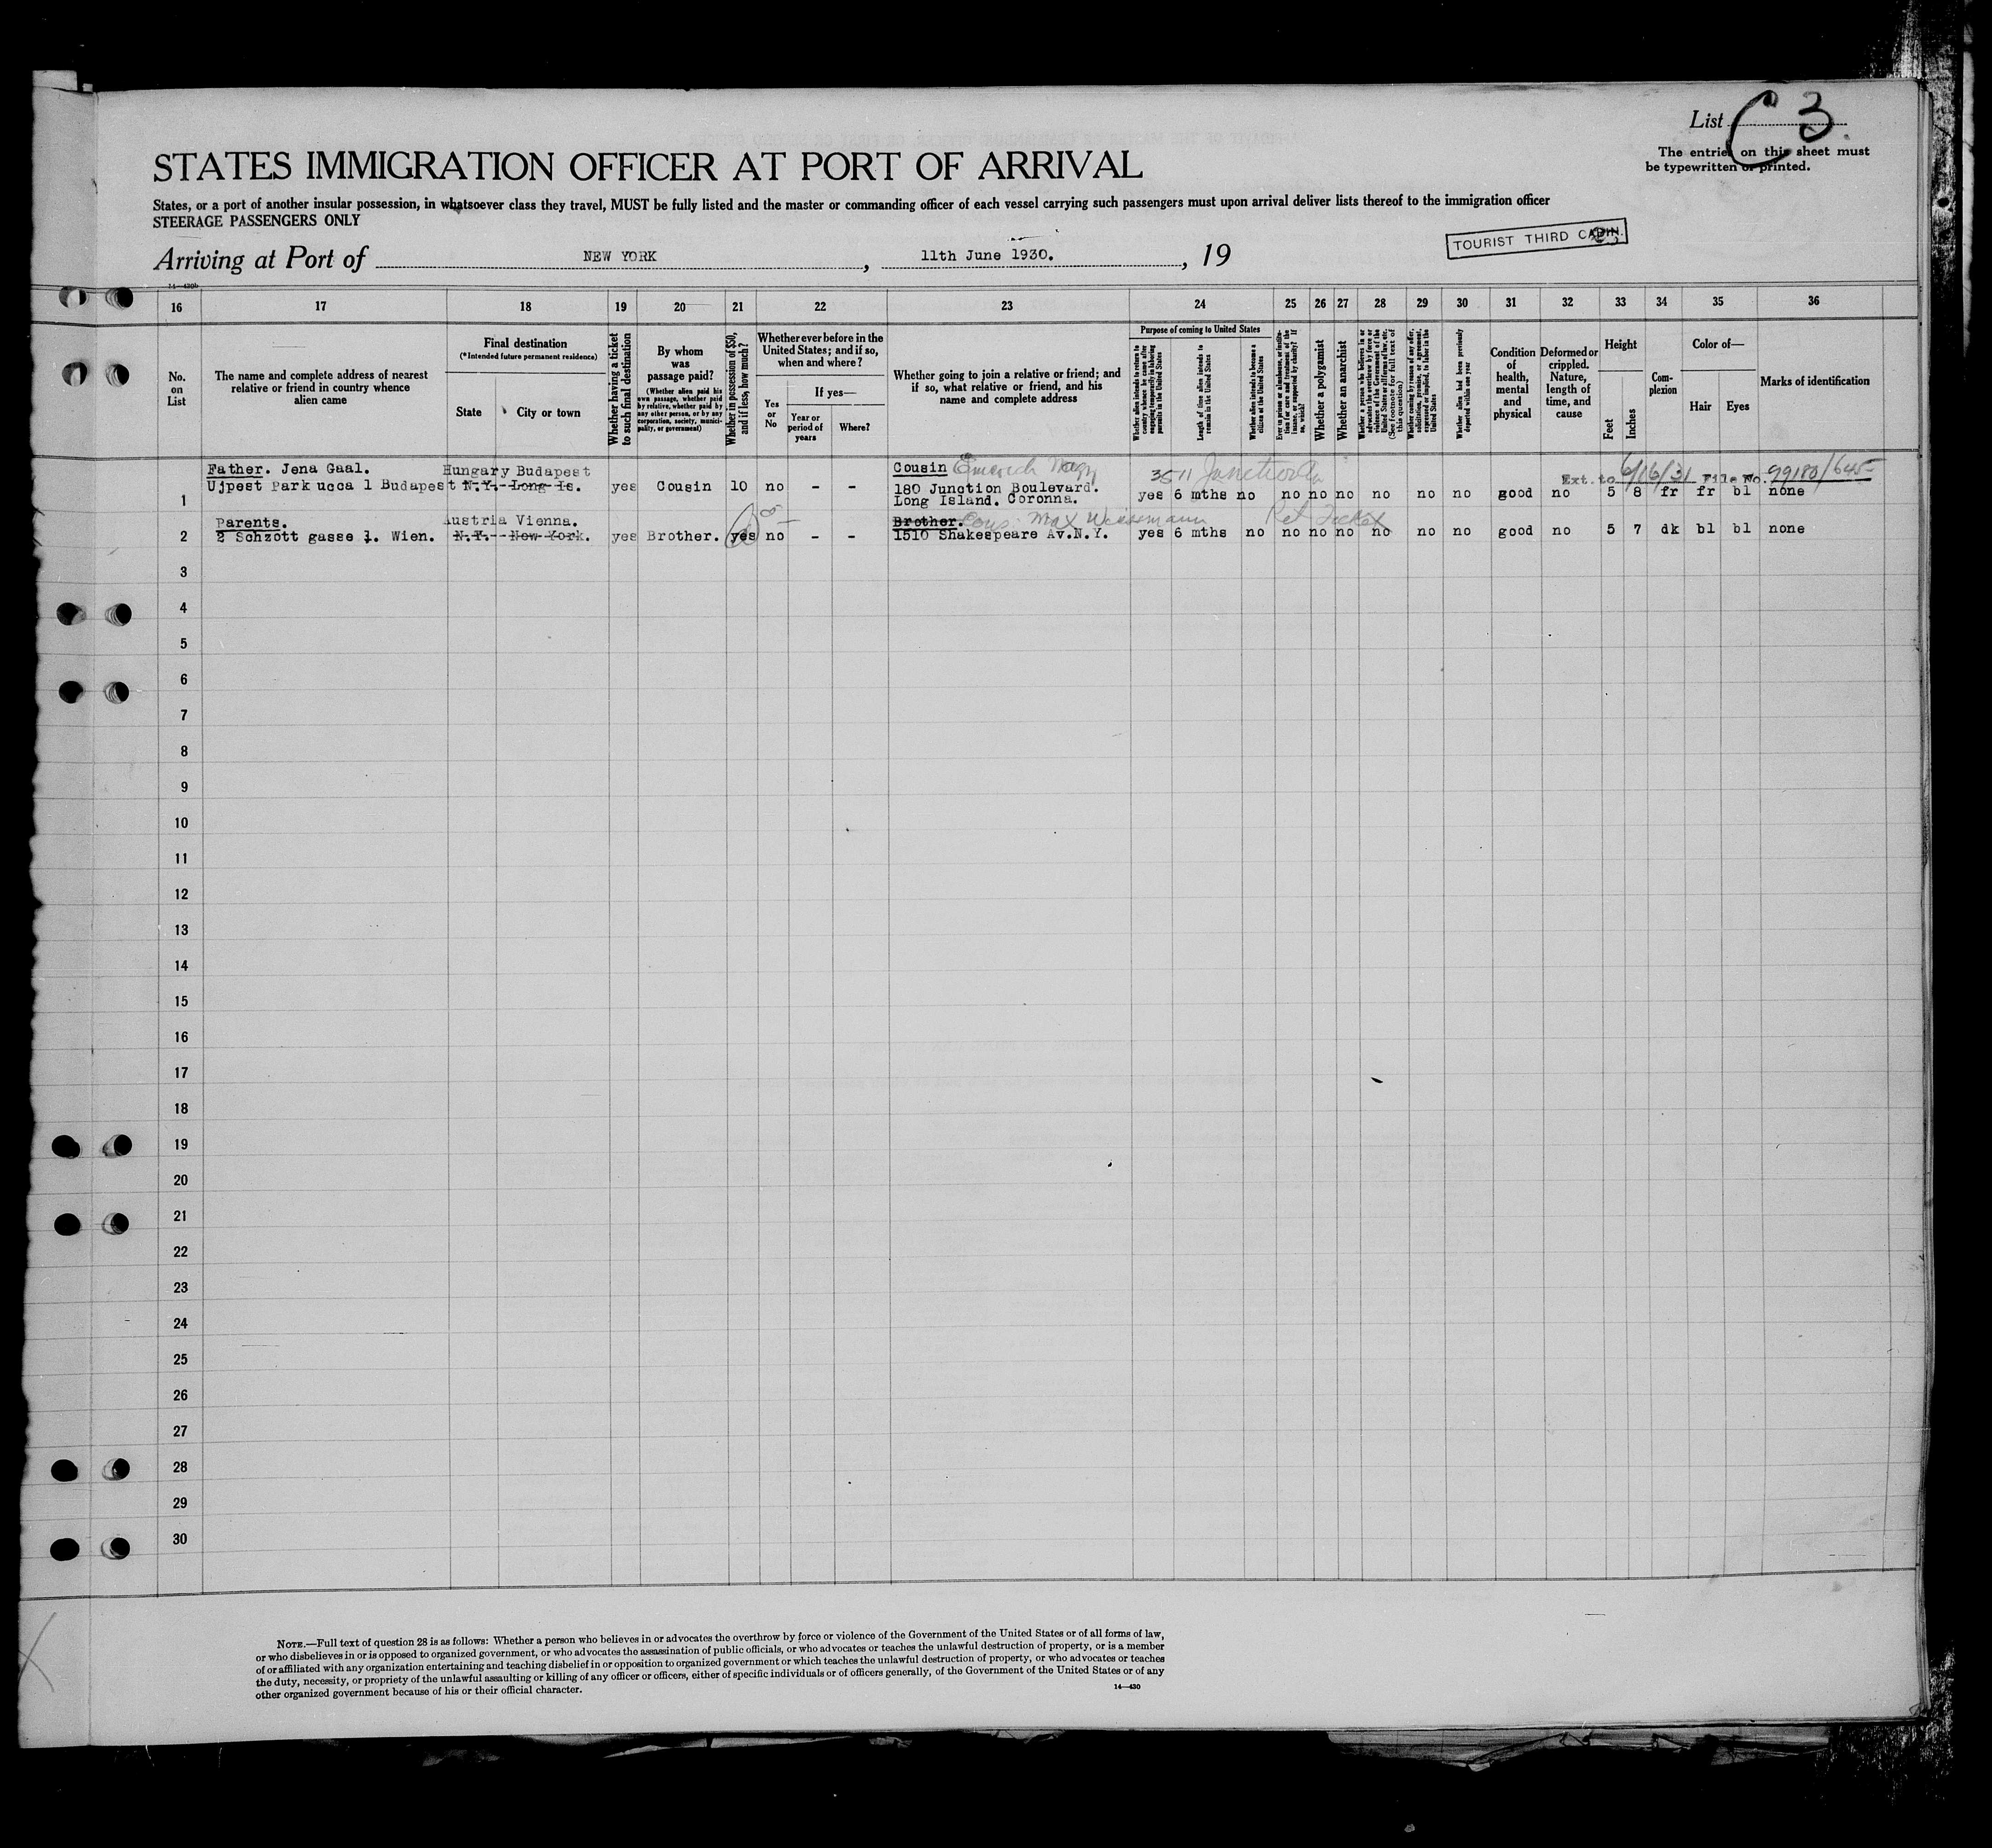 List C 3
The entries on this sheet must
be typewritten or printed.
STATES IMMIGRATION OFFICER AT PORT OF ARRIVAL
States, or a port of another insular possession, in whatsoever class they travel, MUST be fully listed and the master or commanding officer of each vessel carrying such passengers must upon arrival deliver lists thereof to the immigration officer
STEERAGE PASSENGERS ONLY
TOURIST THIRD CABIN.
Arriving at Port of NEW YORK, 11th June 1930., 19
14—430b
16 17 18 19 20 21 22 23 24 25 26 27 28 29 30 31 32 33 34 35 36
No. on List
The name and complete address of nearest relative or friend in country whence alien came
Final destination
(*Intended future permanent residence)
State
City or town
Whether having a ticket to such final destination
By whom was passage paid?
(Whether alien paid his own passage, whether paid by relative, whether paid by any other person, or by any corporation, society, municipality, or government)
Whether in possession of $50, and if less, how much?
Whether ever before in the United States; and if so, when and where?
Yes or No
If yes—
Year or period of years
Where?
Whether going to join a relative or friend; and if so, what relative or friend, and his name and complete address
Purpose of coming to United States
Whether alien intends to return to country whence he came after engaging temporarily in laboring pursuits in the United States
Length of time alien intends to remain in the United States
Whether alien intends to become a citizen of the United States
Ever in prison or almshouse, or institution for care and treatment of the insane, or supported by charity? If so, which?
Whether a polygamist
Whether an anarchist
Whether a person who believes in or advocates the overthrow by force or violence of the Government of the United States or all forms of law, etc. (See footnote for full text of this question)
Whether coming by reason of any offer, solicitation, promise, or agreement, expressed or implied, to labor in the United States
Whether alien had been previously deported within one year
Condition of health, mental and physical
Deformed or crippled. Nature, length of time, and cause
Height
Feet
Inches
Complexion
Color of—
Hair
Eyes
Marks of identification
Father. Jena Gaal. Hungary Budapest Cousin Emerich Nagy 3511 Junction Ext. to 6/16/31 File No. 99180/645
1 Ujpest Park ucca 1 Budapest N.Y. Long Is. yes Cousin 10 no - - 180 Junction Boulevard. yes 6 mths no no no no no no no good no 5 8 fr fr bl none
Long Island. Coronna.
Parents. Austria Vienna. Brother. Cous: Max Weissmann Ret Ticket
2 2 Schzott gasse 1. Wien. N.Y. New York. yes Brother. yes no - - 1510 Shakespeare Av.N.Y. yes 6 mths no no no no no no no good no 5 7 dk bl bl none
3
4
5
6
7
8
9
10
11
12
13
14
15
16
17
18
19
20
21
22
23
24
25
26
27
28
29
30
NOTE.—Full text of question 28 is as follows: Whether a person who believes in or advocates the overthrow by force or violence of the Government of the United States or of all forms of law,
or who disbelieves in or is opposed to organized government, or who advocates the assassination of public officials, or who advocates or teaches the unlawful destruction of property, or is a member
of or affiliated with any organization entertaining and teaching disbelief in or opposition to organized government or which teaches the unlawful destruction of property, or who advocates or teaches
the duty, necessity, or propriety of the unlawful assaulting or killing of any officer or officers, either of specific individuals or of officers generally, of the Government of the United States or of any
other organized government because of his or their official character.
14—430